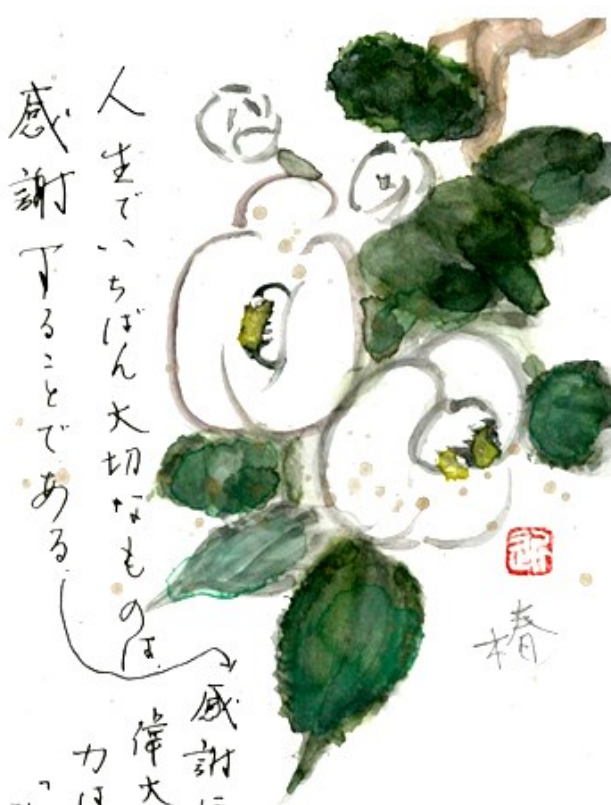 人生でいちばん大切なものは
感謝することである
感謝に
偉大
力は
椿